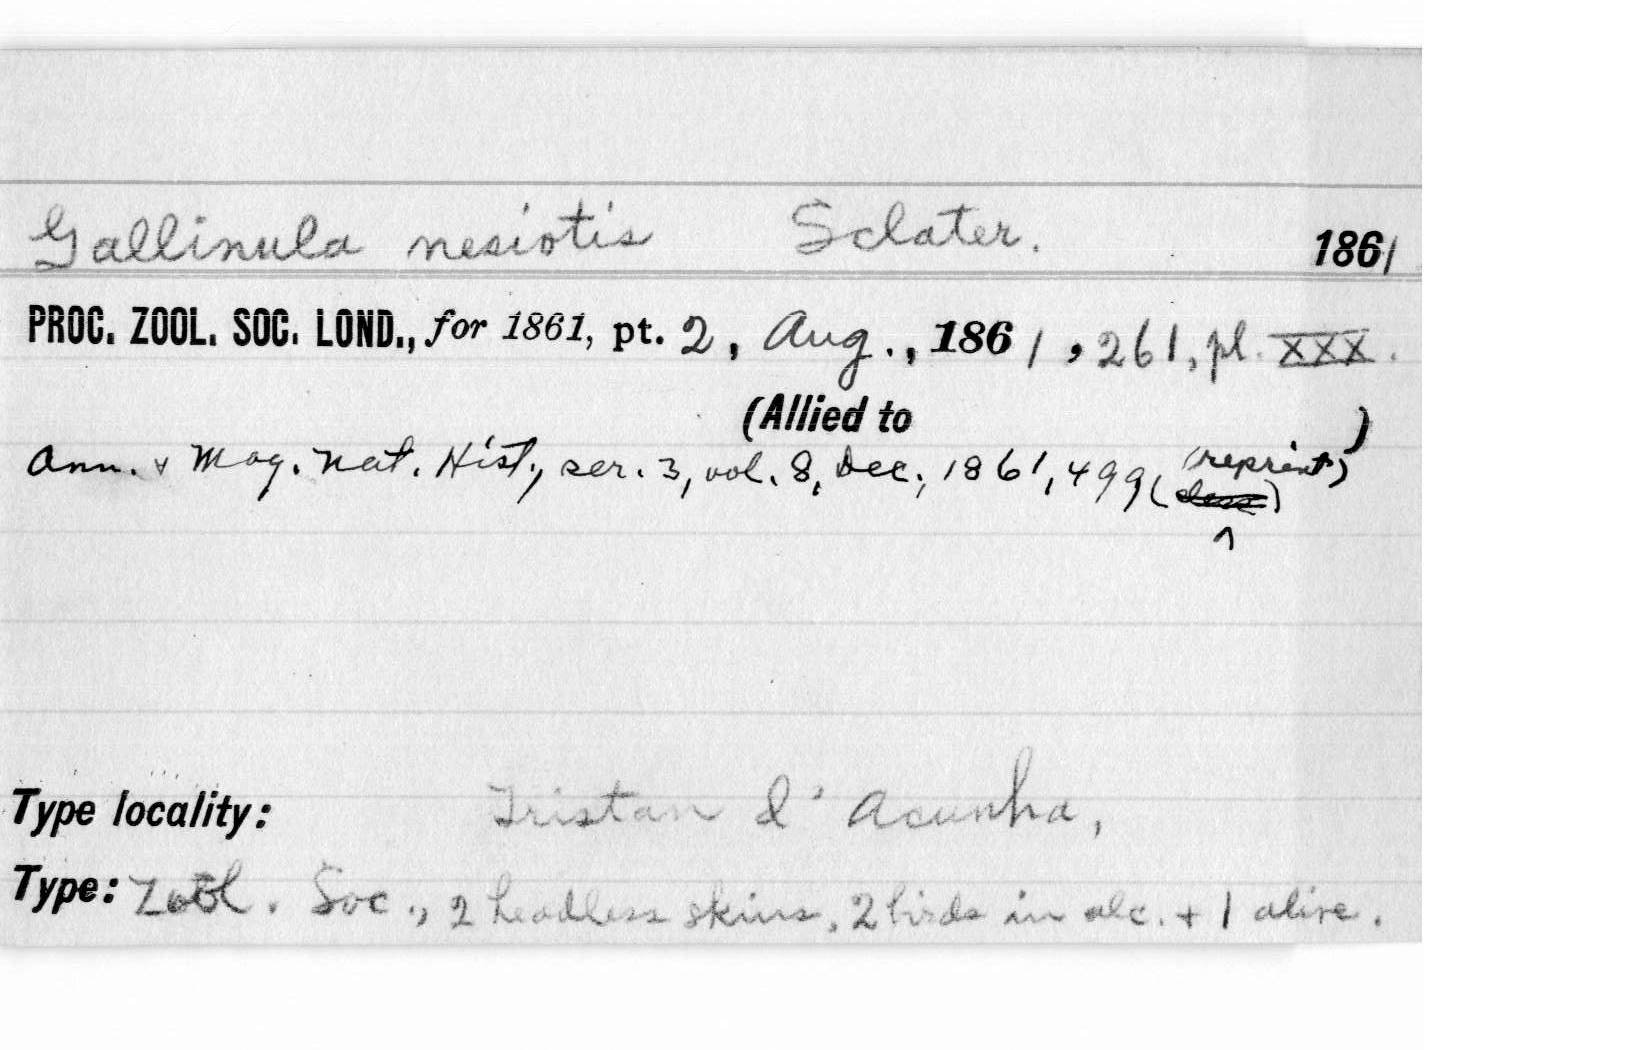 Gallinula nesiotis Sclater. 1861
PROC. ZOOL. SOC. LOND., for 1861, pt. 2, Aug., 1861, 261, pl. XXX.
(Allied to )
Ann. & Mag. Nat. Hist., ser. 3, vol. 8, Dec., 1861, 499 (reprint)
Type locality: Tristan d'Acunha,
Type: Zool. Soc., 2 headless skins, 2 birds in alc. + 1 alive.